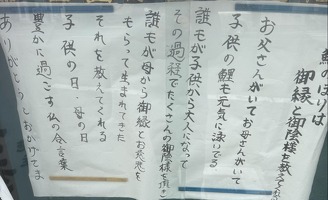 鯉のぼりは
御縁と御陰様を教えて
お父さんがいてお母さんがいて
子供の鯉も元気に泳いでる
誰もが子供から大人になって
その過程でたくさんの御陰様を頂き
誰もが母から御縁とお慈悲を
もらって生まれてきた
それを教えてくれる
子供の日・母の日
豊かに過ごす仏の合言葉
ありがとうとおかげさま